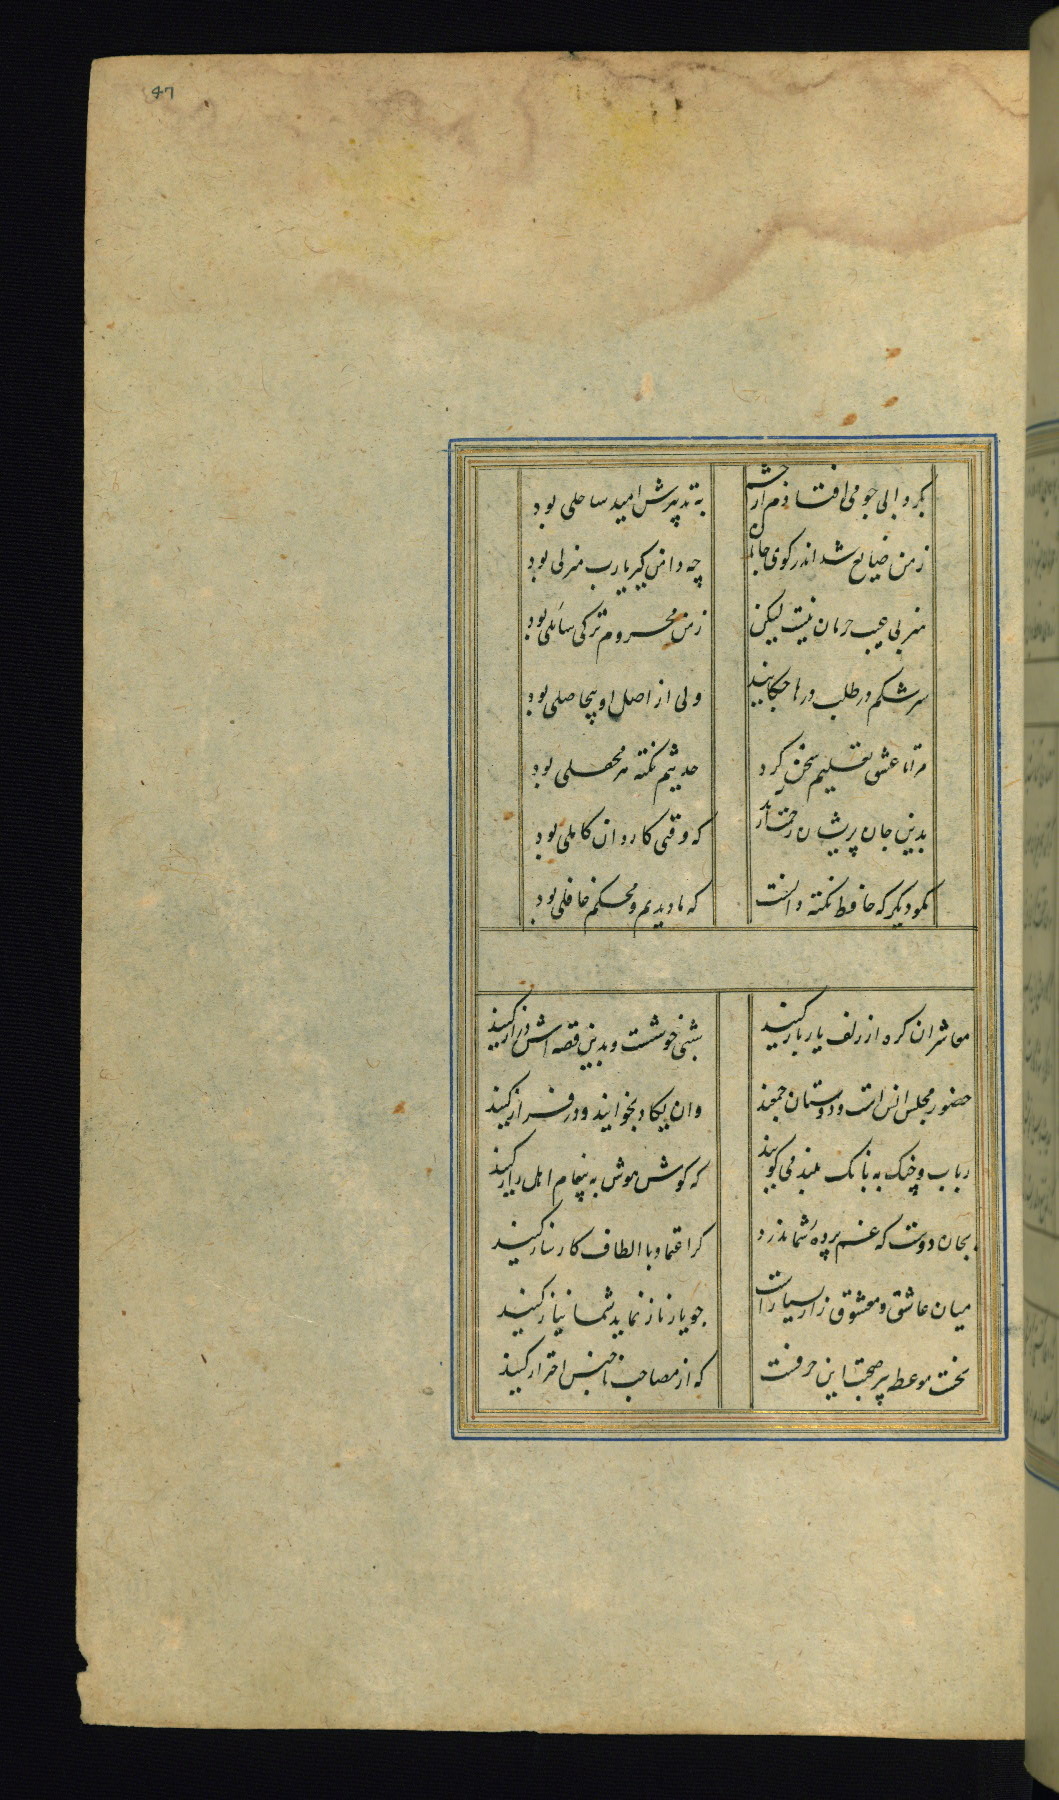 47
بکردابی جو می افتادم از چشم به تدبیرش امید ساحلی بود
زمن ضایع شد اندر کوی جانان چه دامن گیر یارب منزلی بود
هنر بی عیب حرمان نیست لیکن زمن محروم‌تر کی سائلی بود
سرشکم در طلب درها چکانید ولی از اصل او بیحاصلی بود
مرتا عشق تعلیم سخن کرد حدیثم نکته هر محفلی بود
بدین جان پریشان رحمت آرید که وقتی کاردان کاملی بود
نکو دیکر که حافظ نکته دانست که ما دیدیم و محکم غافلی بود
معاشران کره از زلف یار باز کنید شبی خوشست و بدین قصه اش دراز کنید
حضور مجلس انس است و دوستان جمعند وان یکاد بخوانید و در فراز کنید
رباب و چنک به بانک بلند می کویند که کوش هوش به پیغام اهل راز کنید
بجان دوست که غم پرده شما ندرد کر اعتماد با الطاف کارساز کنید
میان عاشق و معشوق بسیار است جو یار ناز نماید شما نیاز کنید
نخست موعظه پیر صحبت این حرفست که از مصاحب ناجنس احتراز کنید